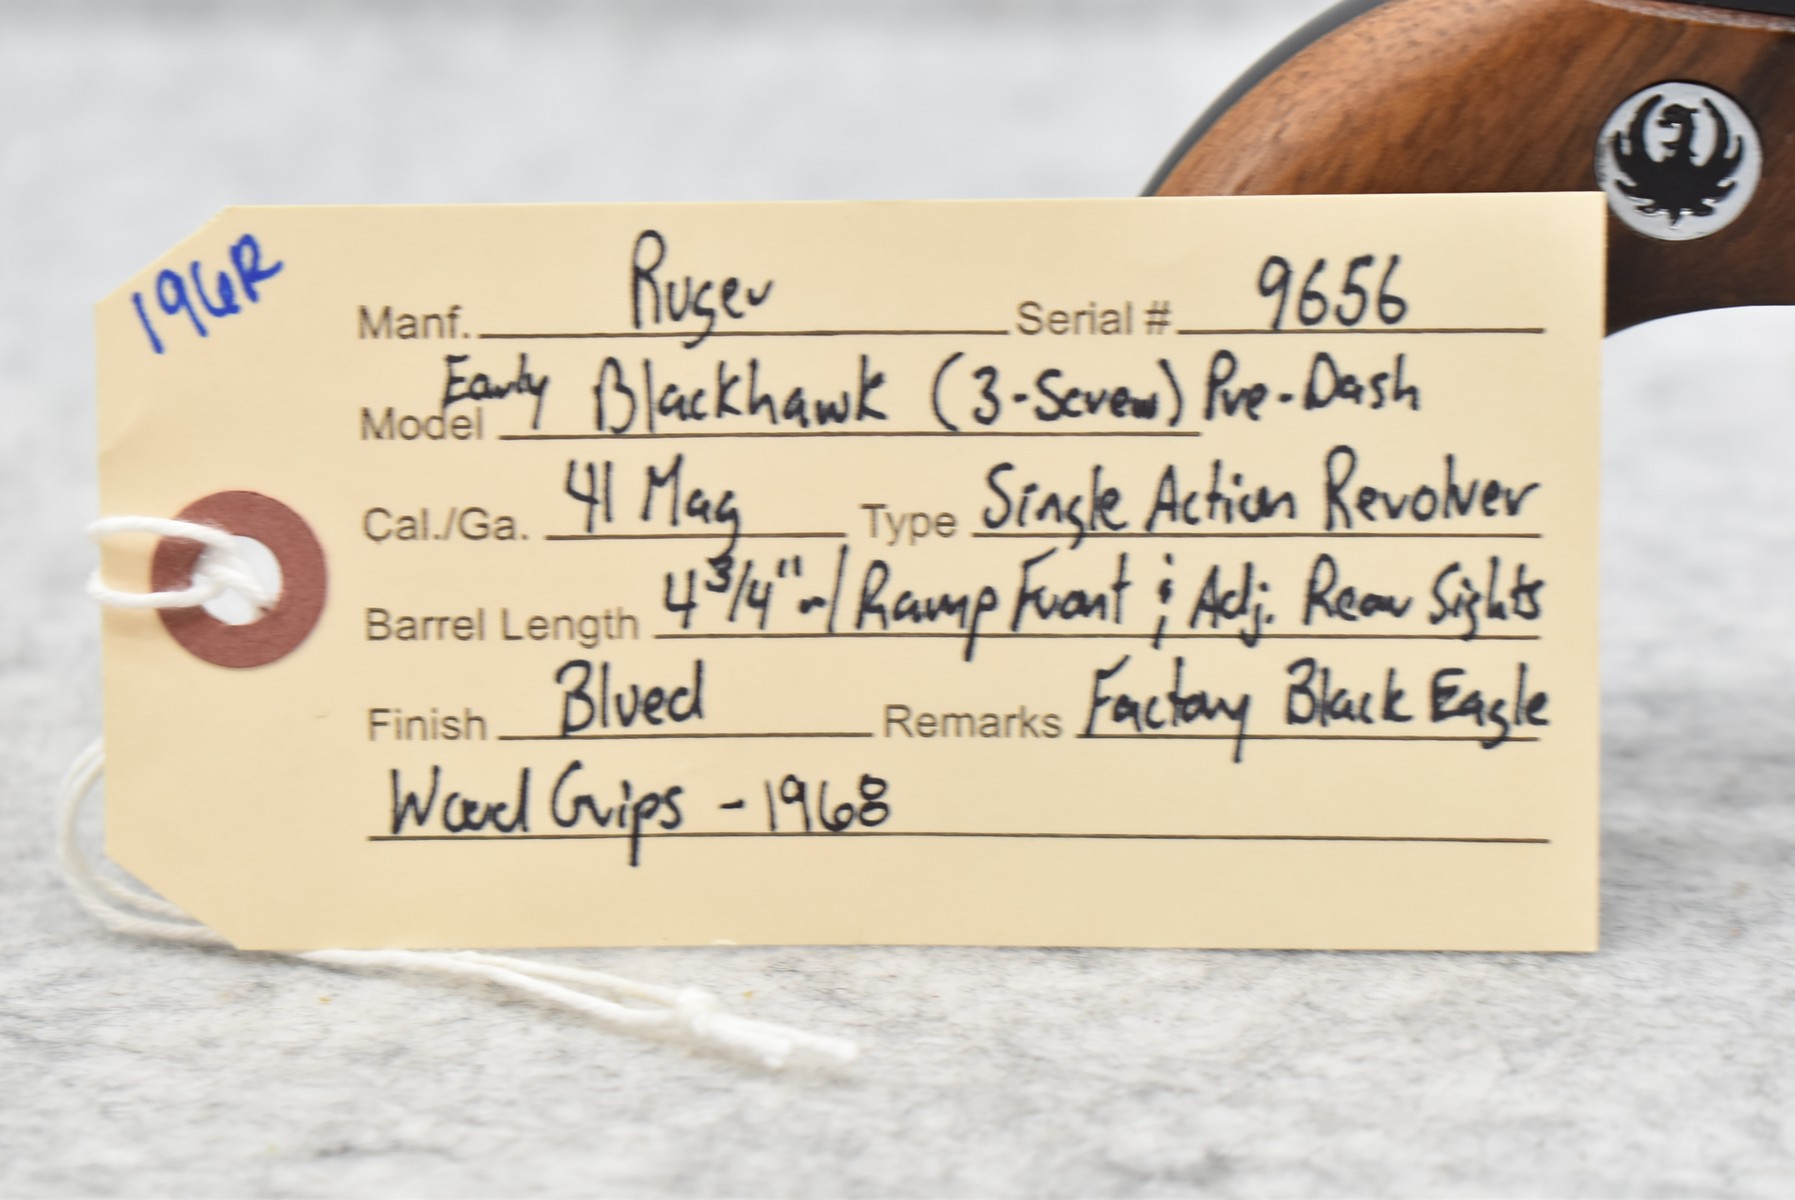 196R
Manf. Ruger Serial # 9656
Model Early Blackhawk (3-Screw) Pre-Dash
Cal./Ga. 41 Mag Type Single Action Revolver
Barrel Length 4 3/4" w/ Ramp Front & Adj. Rear Sights
Finish Blued Remarks Factory Black Eagle
Wood Grips - 1968